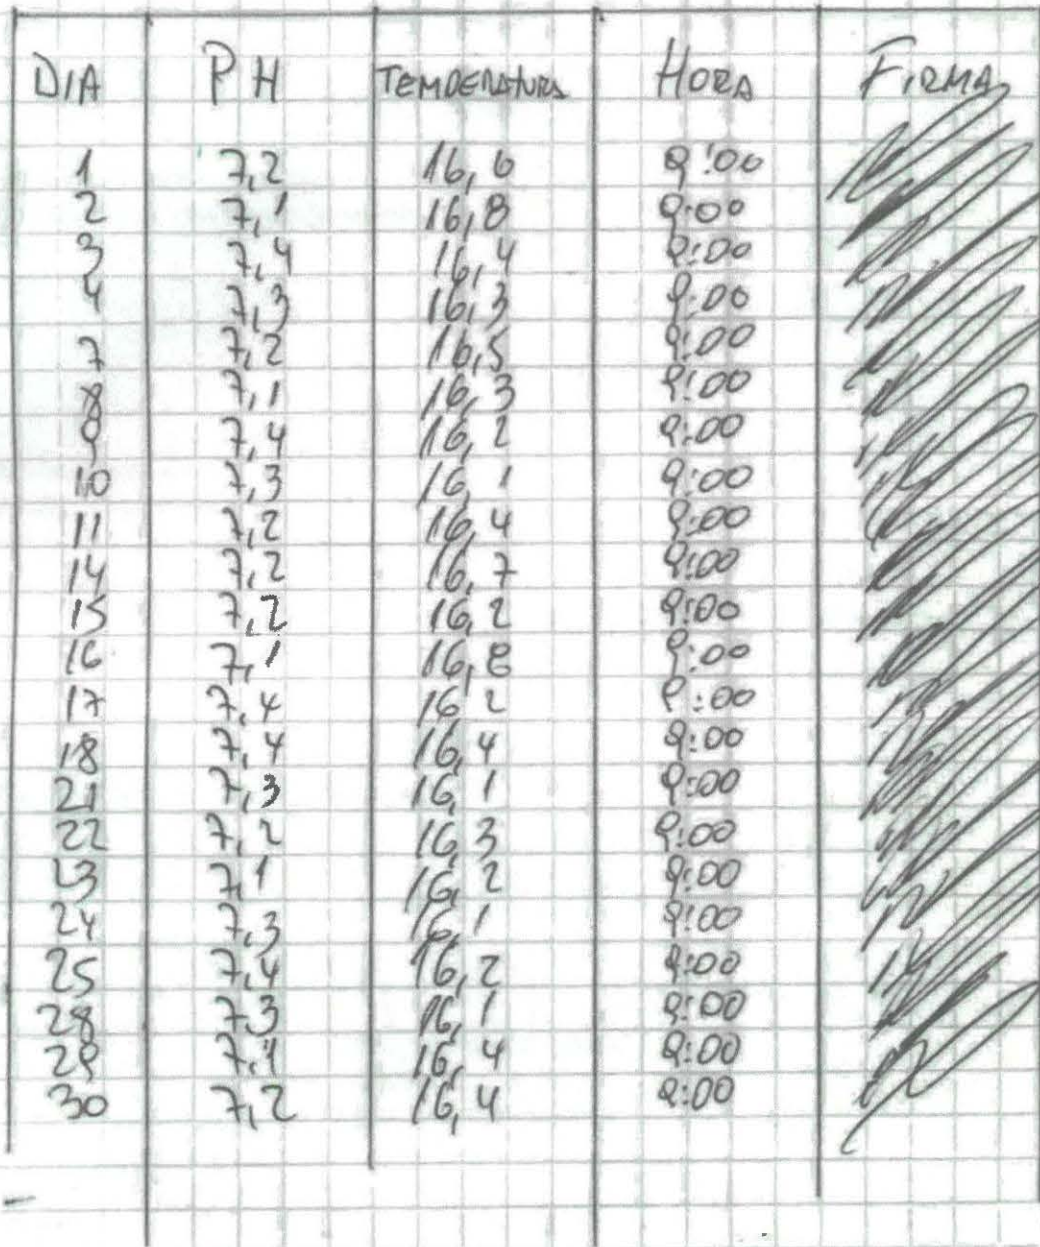 DIA PH TEMPERATURA HORA FIRMA
1 7,2 16,6 9:00
2 7,1 16,8 9:00
3 7,4 16,4 9:00
4 7,3 16,3 9:00
7 7,2 16,5 9:00
8 7,1 16,3 9:00
9 7,4 16,2 9:00
10 7,3 16,1 9:00
11 7,2 16,4 9:00
14 7,2 16,7 9:00
15 7,2 16,2 9:00
16 7,1 16,8 9:00
17 7,4 16 2 9:00
18 7,4 16,4 9:00
21 7,3 16,1 9:00
22 7,2 16,3 9:00
23 7,1 16,2 9:00
24 7,3 16,1 9:00
25 7,4 16,2 9:00
28 7,3 16,1 9:00
29 7,1 16,4 9:00
30 7,2 16,4 9:00